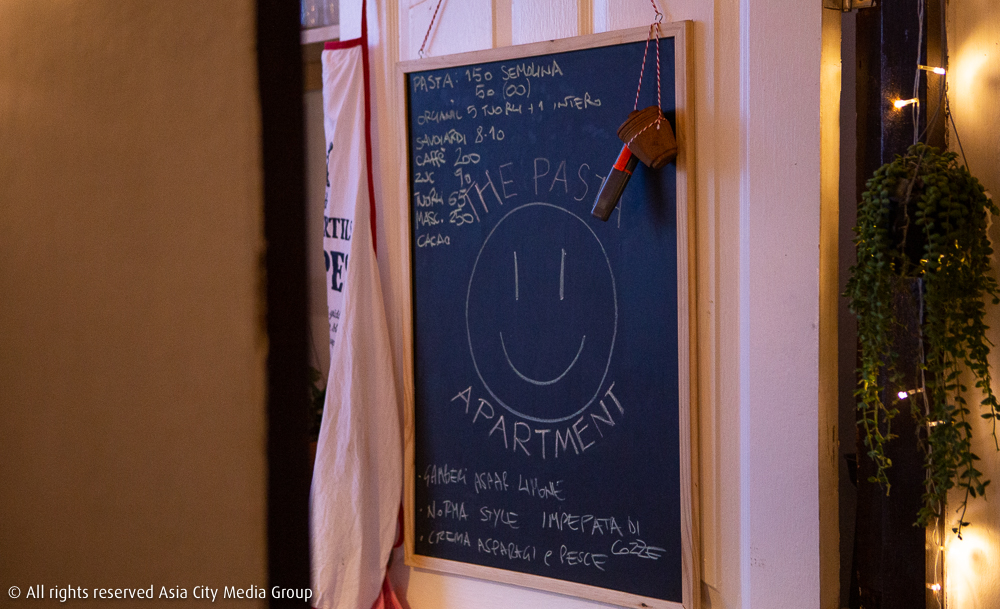 PASTA: 150 SEMOLINA
50 (00)
5 TUORLI + 1 INTERO
SAVOIARDI 8-10
CAFFÈ 200
ZUC 90
TUORLI 65
MASC. 250
CACAO
THE PASTA
APARTMENT
· GAMBERI ASPAR LIMONE
· NORMA STYLE IMPEPATA DI
COZZE
· CREMA ASPARAGI e PESCE
© All rights reserved Asia City Media Group